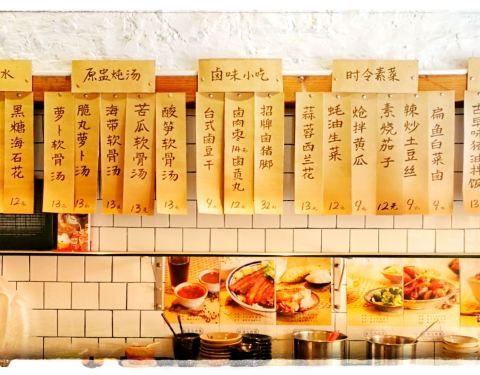 水
黑糖海石花 12元
原盅炖汤
萝卜软骨汤 13元
脆丸萝卜汤 13元
海带软骨汤 13元
苦瓜软骨汤 13元
酸笋软骨汤 13元
卤味小吃
台式卤豆干 9元
卤肉枣 卤贡丸 12元
招牌卤猪脚 32元
时令素菜
蒜蓉西兰花 13元
蚝油生菜 12元
炝拌黄瓜 9元
素烧茄子 12元
辣炒土豆丝 9元
扁鱼白菜卤 9元
古早味猪油拌饭